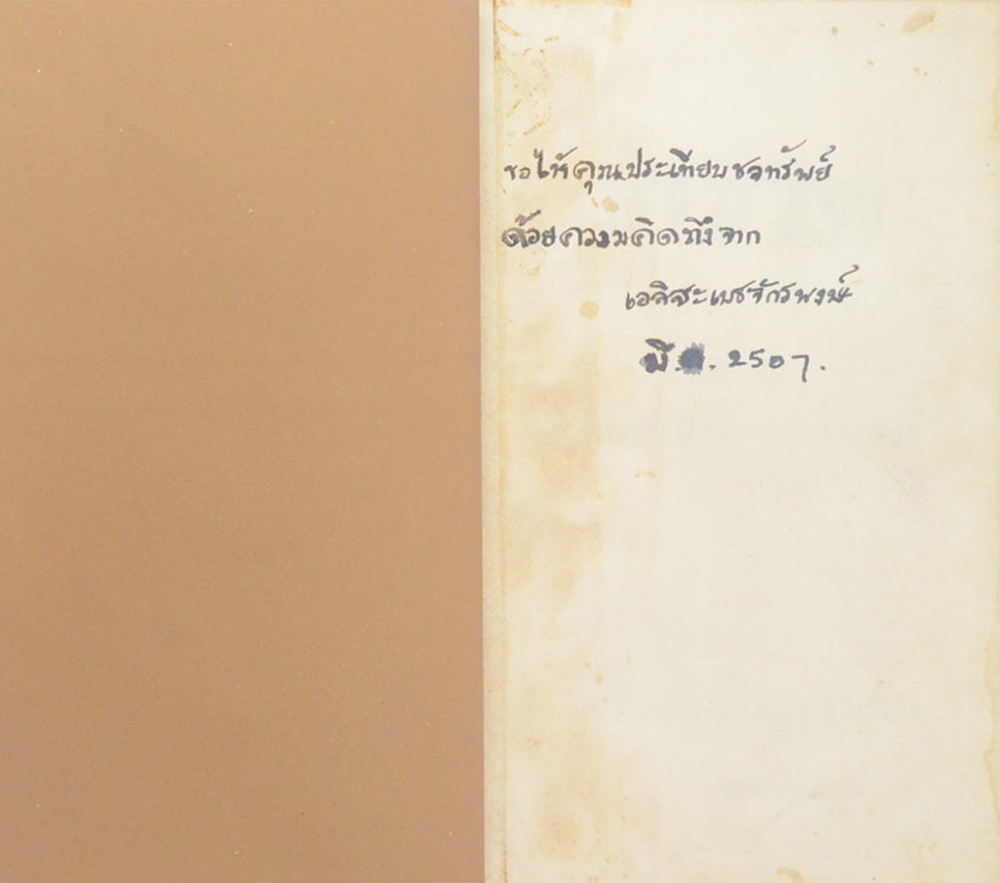 ขอให้คุณประเทียบชลทรัพย์
ด้วยความคิดถึงจาก
เอลิสะเบธจักรพงษ์
มี. . 2507.